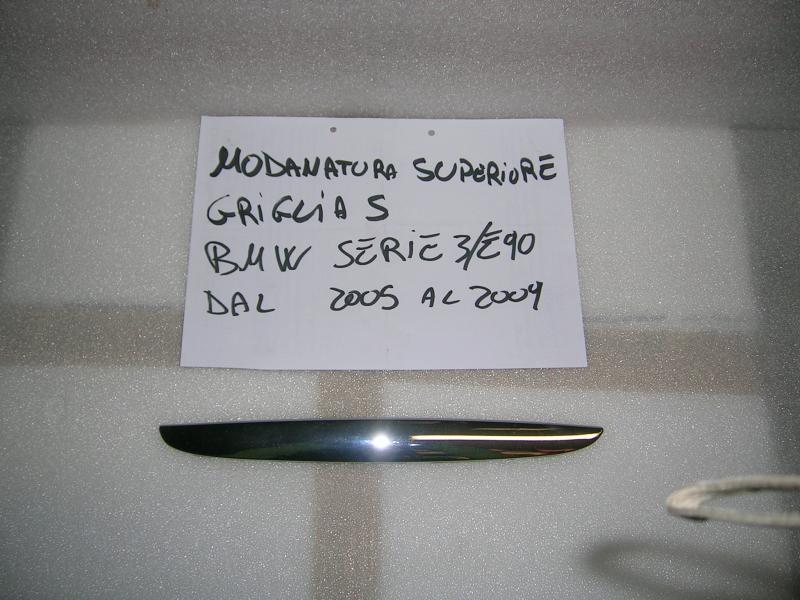 MODANATURA SUPERIORE
GRIGLIA S
BMW SERIE 3/E90
DAL 2005 AL 2009